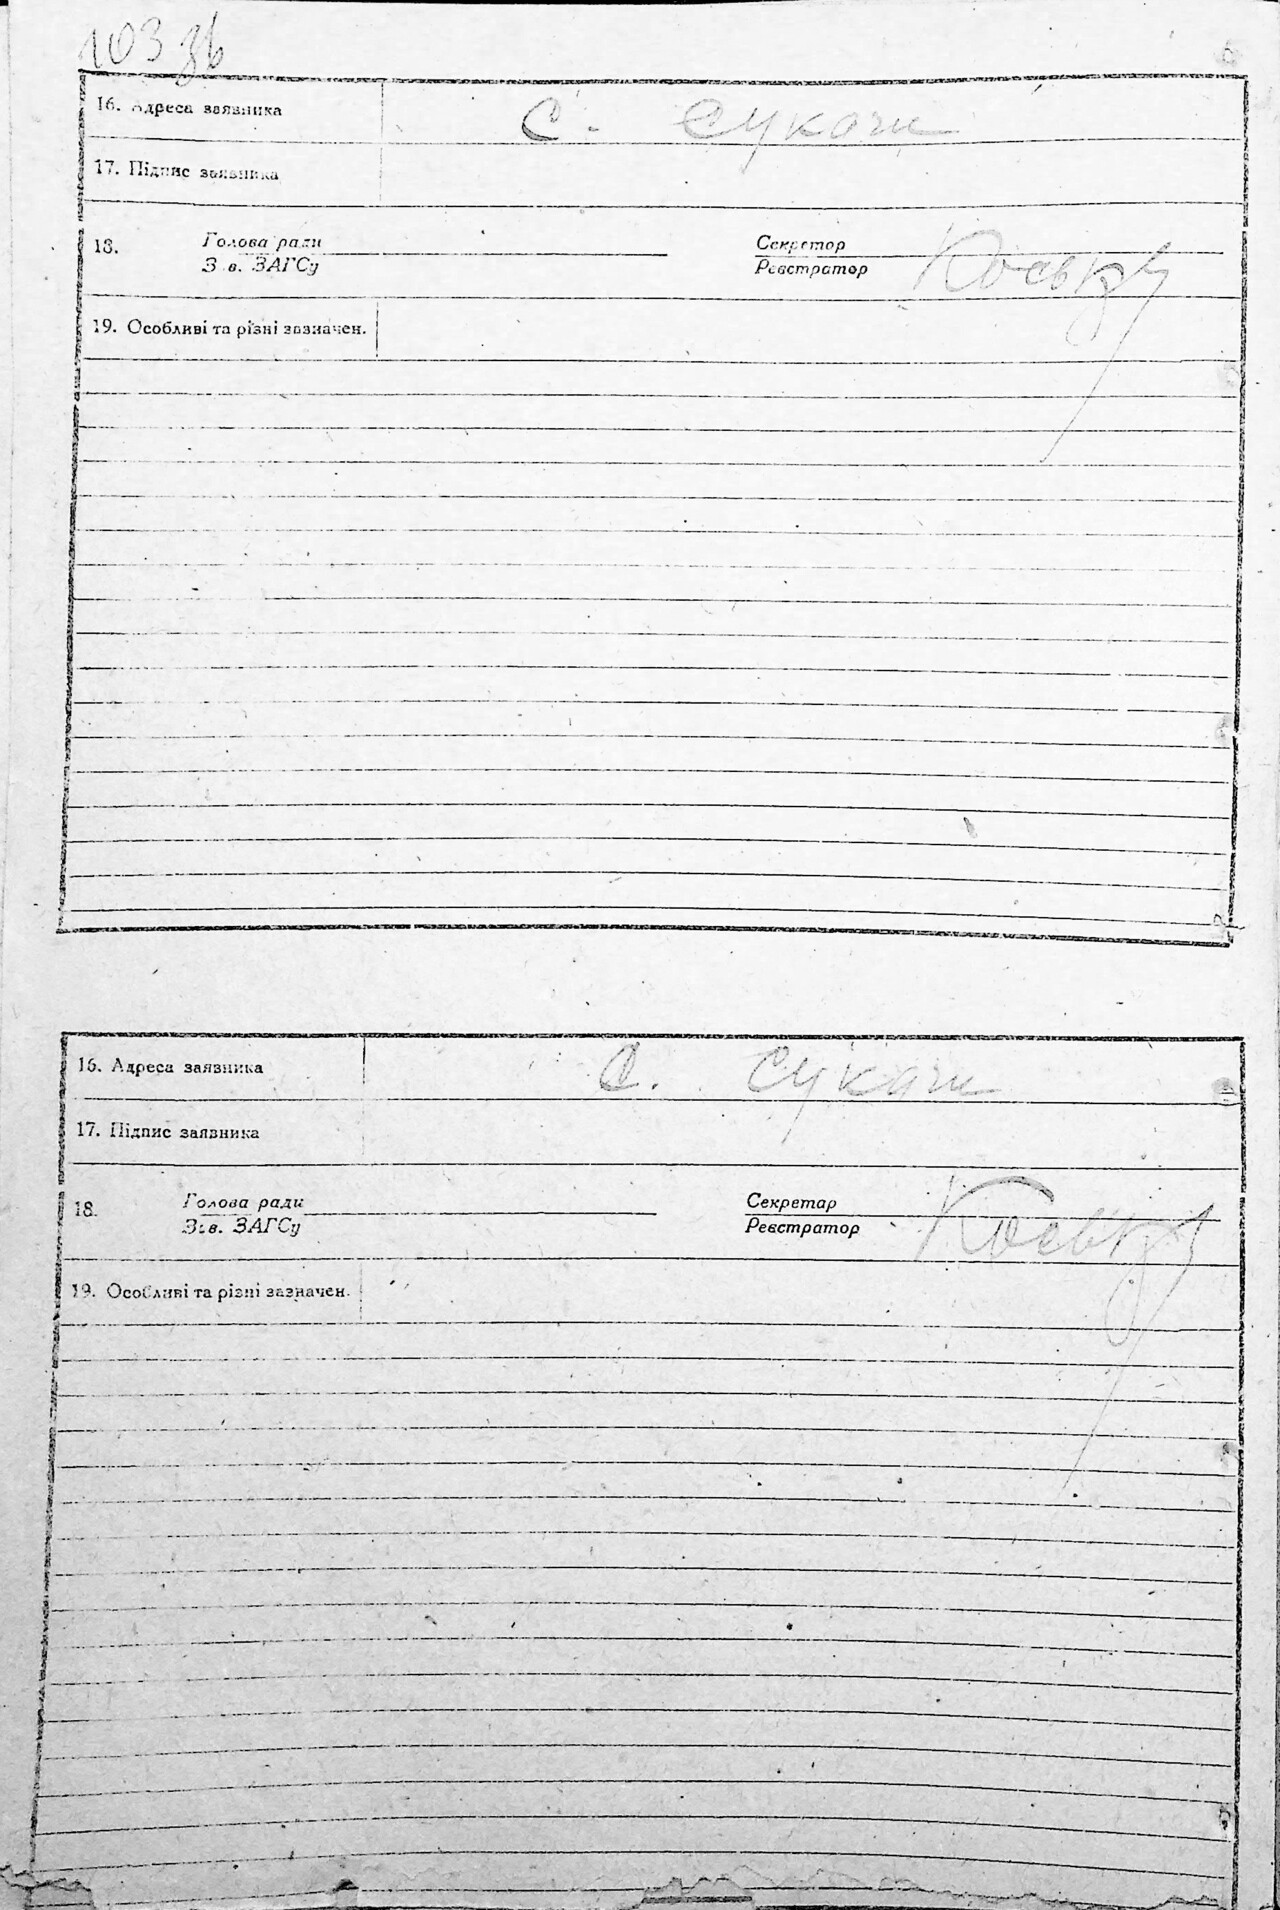 103 зв
16. Адреса заявника с. Сукачі
17. Підпис заявника
18. Голова ради Секретор
Зав. ЗАГСу Реєстратор
19. Особливі та різні зазначен.
16. Адреса заявника с. Сукачі
17. Підпис заявника
18. Голова ради Секретар
Зав. ЗАГСу Реєстратор
19. Особливі та різні зазначен.